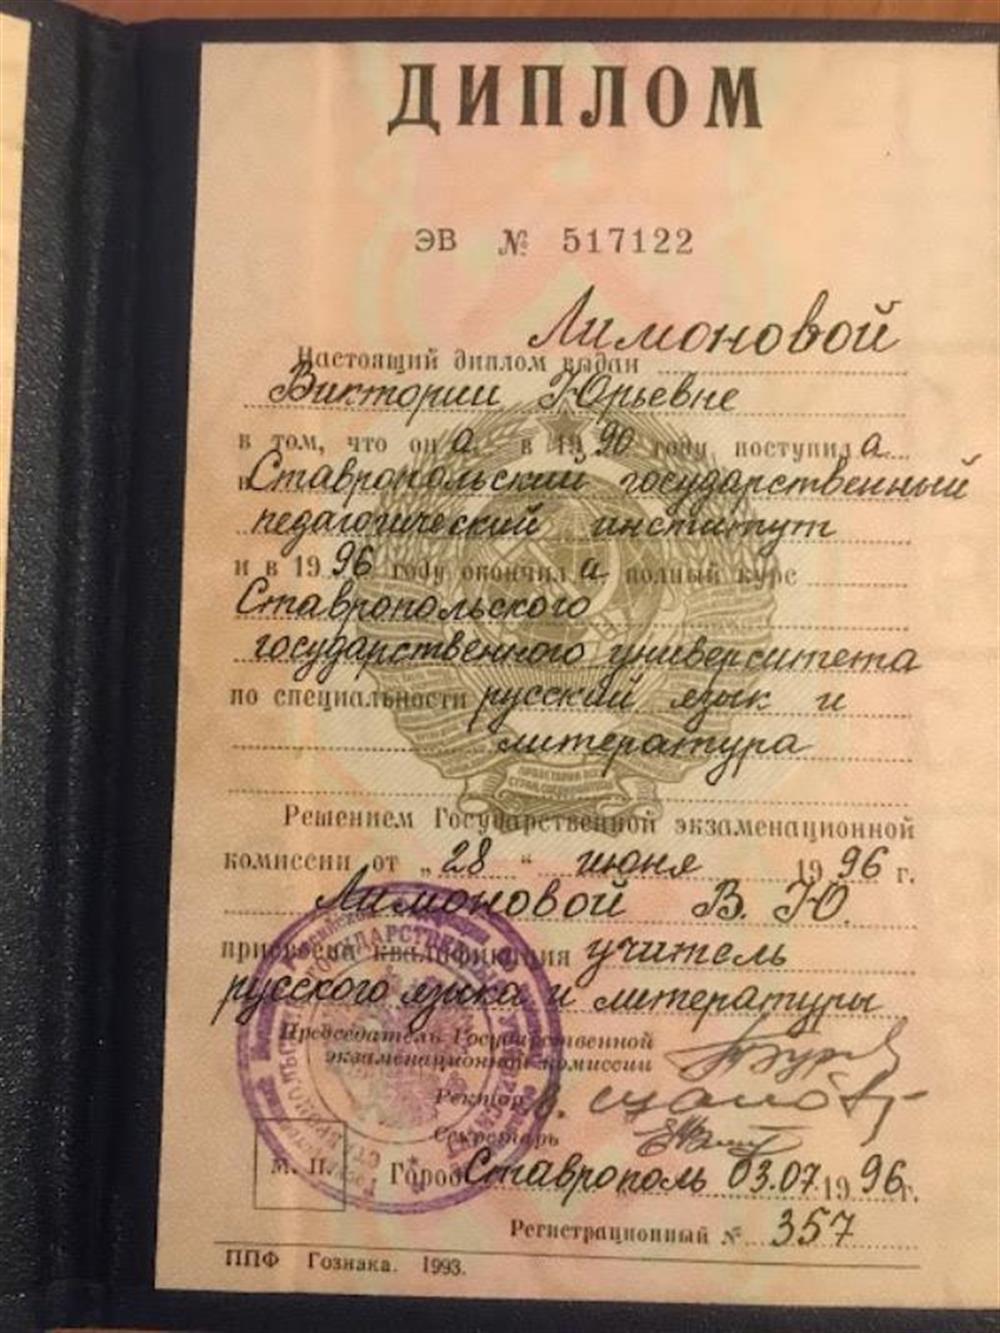 ДИПЛОМ
ЭВ № 517122
Лимоновой
Настоящий диплом выдан
Виктории Юрьевне
в том, что он а в 19 90 году поступил а
в Ставропольский государственный
педагогический институт
и в 19 96 году окончил а полный курс
Ставропольского
государственного университета
по специальности русский язык и
литература
Решением Государственной экзаменационной
комиссии от „ 28 “ июня 19 96 г.
Лимоновой В. Ю.
присвоена квалификация учитель
русского языка и литературы
Председатель Государственной
экзаменационной комиссии
Ректор
Секретарь
М. П. Город Ставрополь 03.07. 19 96 г.
Регистрационный № 357
ППФ Гознака. 1993.